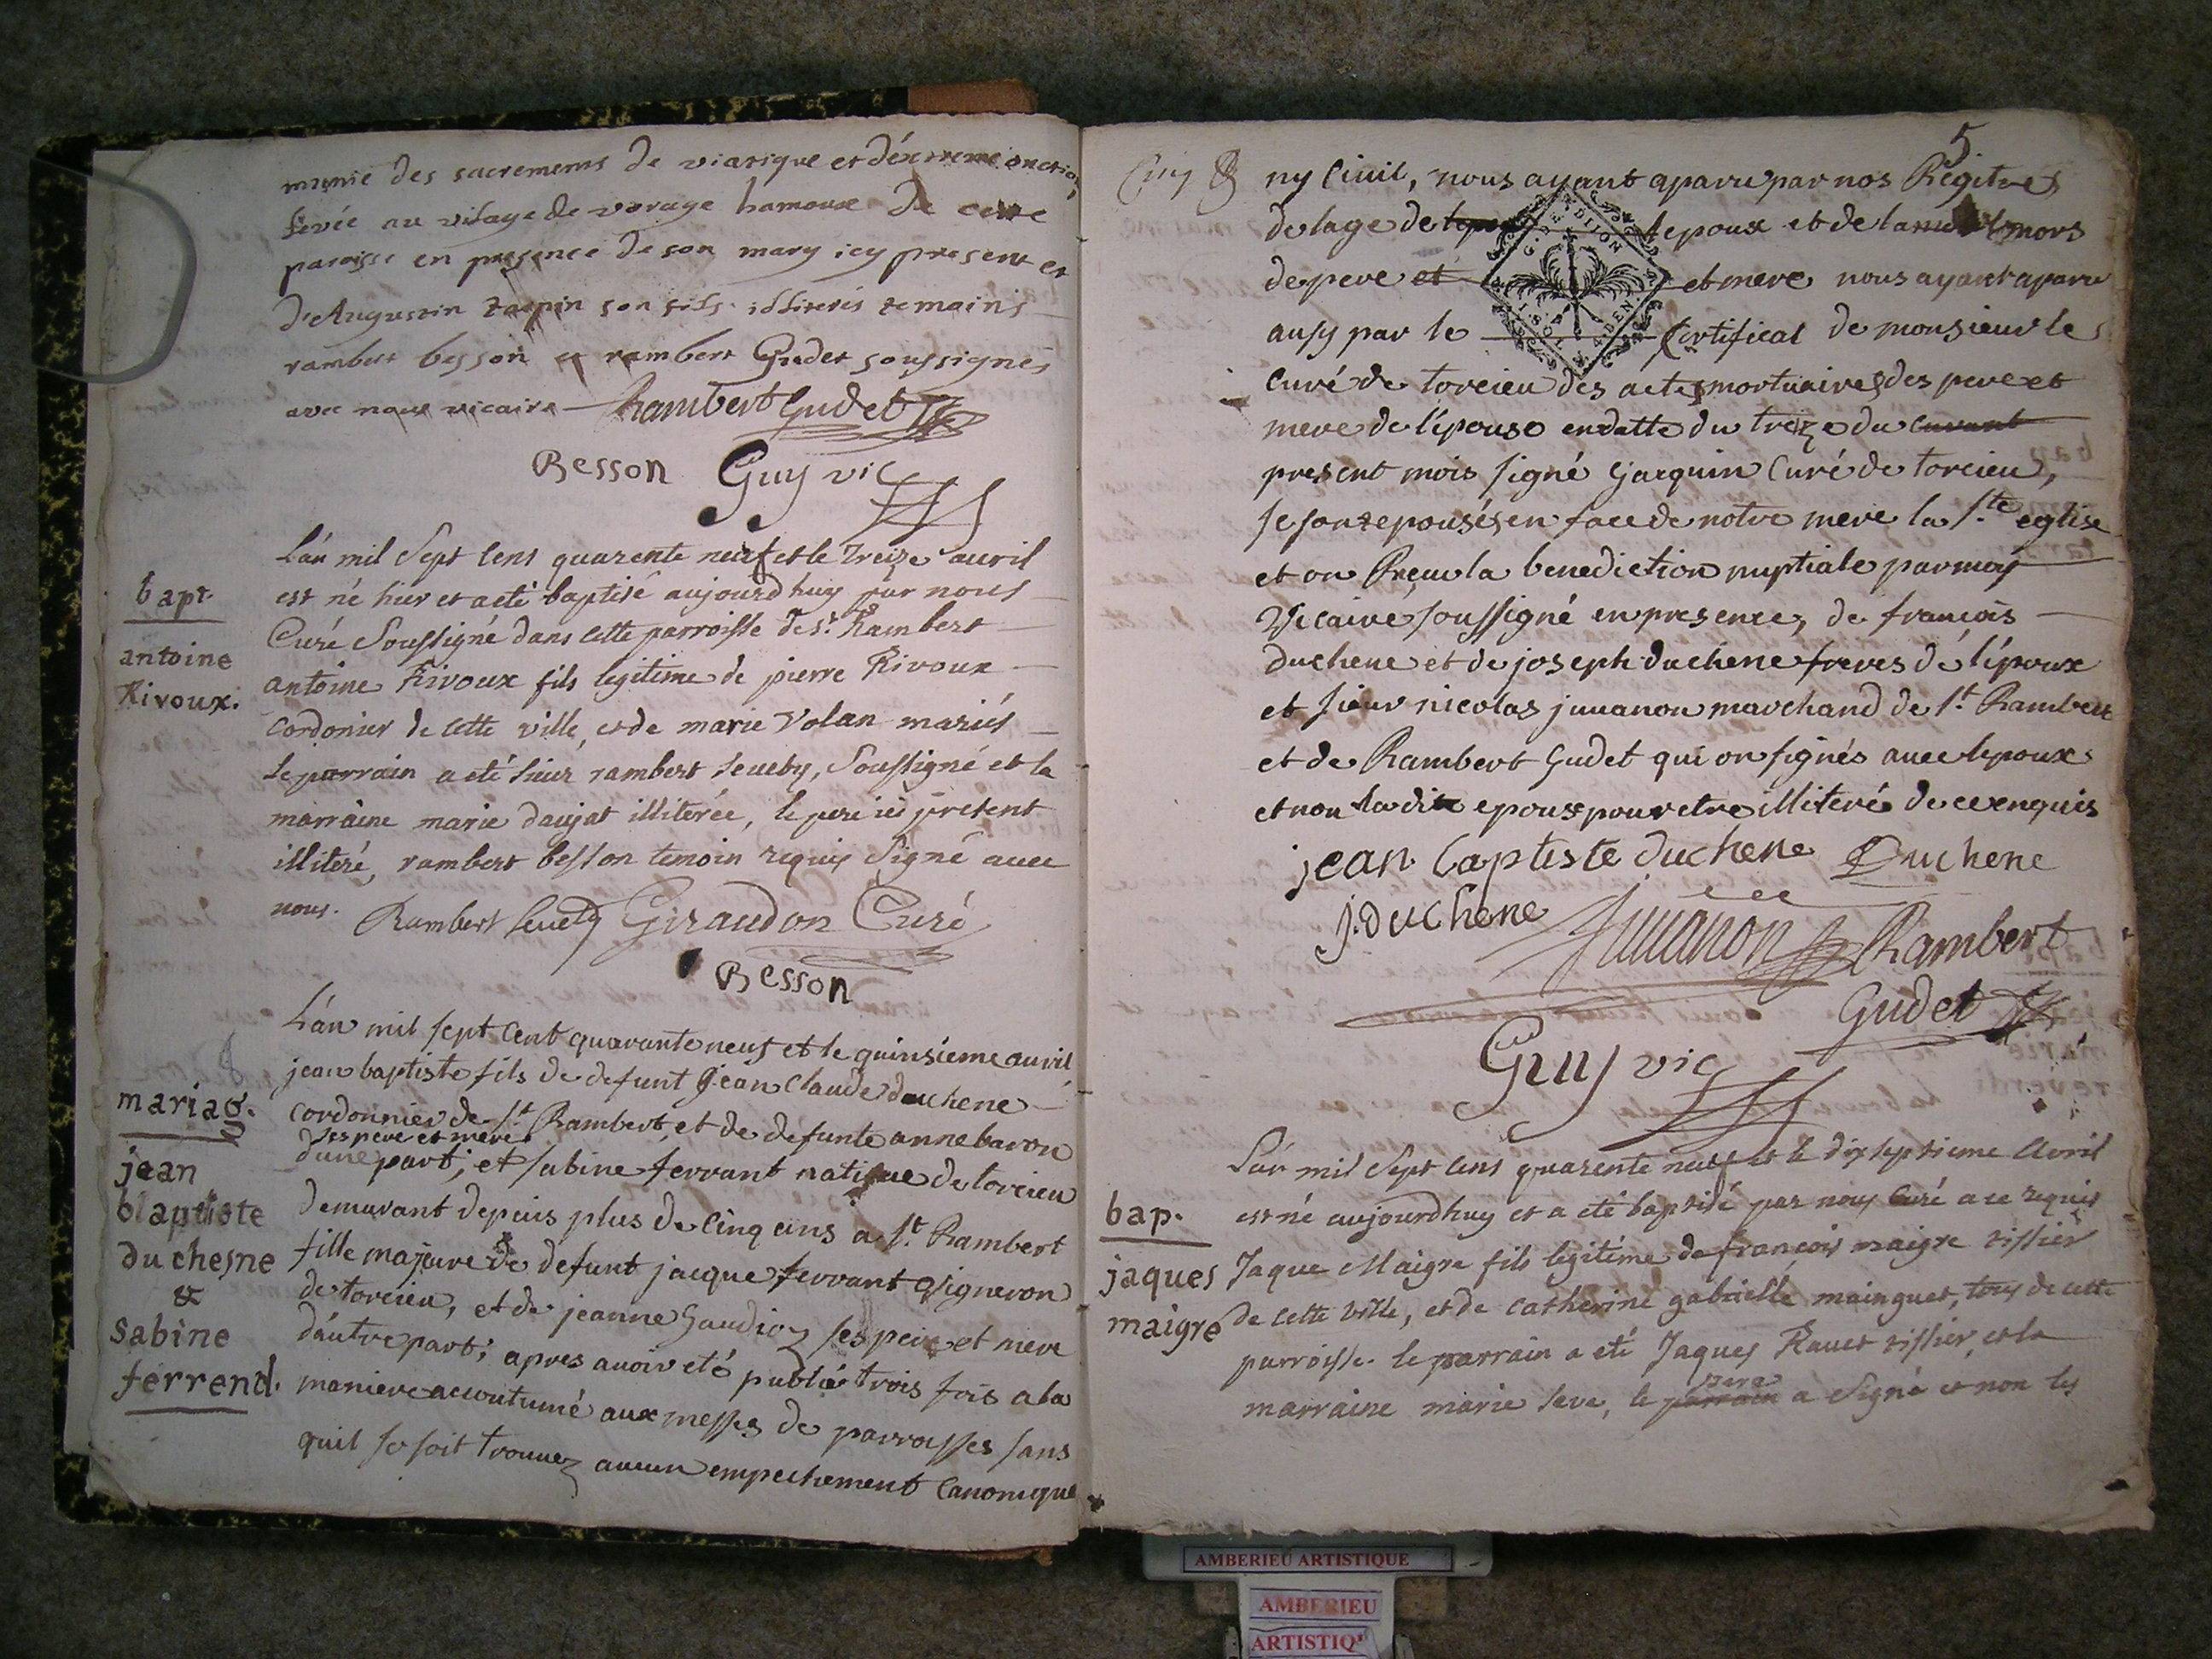 munie des sacrements de viatique et d'éxtreme onction
au vilage de vorage hamoux de cette
paroisse en presence de son mary icy present et
d'Augustin son fils illiterés temoins
rambert besson et rambert Gudet soussignés
avec nous vicaire Rambert Gudet
Besson Guy vic
L'an mil Sept Cens quarente neuf et le treize auril
bapt. est né hier et a eté baptisé aujourd huy par nous
Curé Soussigné dans cette parroisse de St Rambert
antoine
Rivoux. antoine Rivoux fils legitime de pierre Rivoux
Cordonier de cette ville, et de marie Volan mariés
le parrain a eté sieur rambert leuety, Soussigné et la
marraine marie daujat illiterée, le pere ici present
illiteré, rambert besson temoin requis Signé auec
nous. Rambert leuety Giraudon Curé
Besson
L'an mil sept cent quarante neuf et le quinsieme auril
jean baptiste fils de defunt jean Claude duchene
mariag. cordonnier de St Rambert, et de defunte anne baron
ses pere et mere
d'une part; et sabine ferrant natifue de torcieu
jean
baptiste
duchesne
&
sabine
ferrend.
demurant depuis plus de Cinq ans a St Rambert
fille majeure de defunt jacque ferrant Vigneron
de torcieu, et de jeanne Gaudion ses pere et mere
d'autre part; apres auoir eté publié trois fois a la
maniere accoutumé aux messes de parroisses sans
quil se soit trouuez aucun empechement Canonique
5
ny Ciuil, nous ayant aparu par nos Regitres
de lage de lepoux et de la mors
de pere et et mere nous ayant aparu
G. D'EXPEDITION
2. SOLS 4. DEN.
ausy par le Certificat de monsieur le
Curé de torcieu des actes mortuaires des pere et
mere de l'épouse en datte du treize du curant
present mois signé Gacquin Curé de torcieu,
se sont epousés en face de notre mere la Ste eglise
et on Reçu la benediction nuptiale par moy
Vicaire soussigné en presence, de françois
duchene et de joseph duchene freres de l'époux
et sieur nicolas juuanon marchand de St Rambert
et de Rambert Gudet qui on signés auec lepoux
et non la dite epouse pour etre illiteré de ce enquis
jean baptiste duchene Duchene
j. duchene Juuanon Rambert
Gudet
Guy vic
L'an mil Sept Cens quarente neuf et le dix septieme Avril
bap. est né aujourdhuy et a eté baptisé par nous Curé a ce requis
jaques
maigre
Jaque Maigre fils legitime de françois maigre tissier
de cette ville, et de catherine gabrielle mainguet, tous de cette
parroisse. le parrain a eté Jaques Rauet tissier, et la
pere
marraine marie seve, le parrain a Signé et non les
AMBERIEU ARTISTIQUE
AMBERIEU
ARTISTIQ